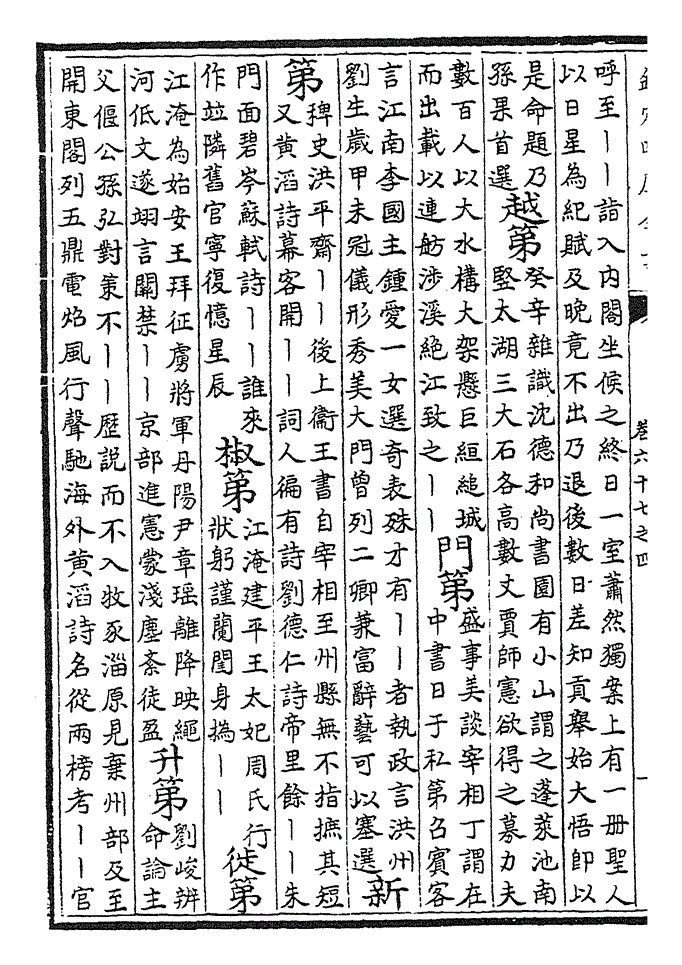 卷六十七之四
呼至丨丨詣入内閣坐候之終日一室蕭然獨案上有一册聖人
以日星為紀賦及晚竟不出乃退後數日差知貢舉始大悟即以
是命題乃
孫果首選
越第
癸辛雜識沈德和尚書園有小山謂之蓬萊池南
竪太湖三大石各高數丈賈師憲欲得之募力夫
數百人以大水構大架懸巨絙縋城
而出載以連舫涉溪絶江致之丨丨
門第
盛事美談宰相丁謂在
中書日于私第召賓客
言江南李國主鍾愛一女選奇表殊才有丨丨者執政言洪州
劉生歲甲未冠儀形秀美大門曾列二卿兼富辭藝可以塞選
新
第
稗史洪平齋丨丨後上衞王書自宰相至州縣無不指摭其短
又黄滔詩幕客開丨丨詞人徧有詩劉德仁詩帝里餘丨丨朱
門面碧岑蘇軾詩丨丨誰來
作竝隣舊官寧復憶星辰
椒第
江淹建平王太妃周氏行
狀躬謹蘭閨身撝丨丨
徙第
江淹為始安王拜征虜將軍丹陽尹章瑶離降映繩
河低文邃翊言關禁丨丨京部進憲蒙淺塵紊徒盈
升第
劉峻辨
命論主
父偃公孫弘對策不丨丨歴説而不入牧豕淄原見棄州部及至
開東閣列五鼎電焰風行聲馳海外黄滔詩名從兩榜考丨丨官